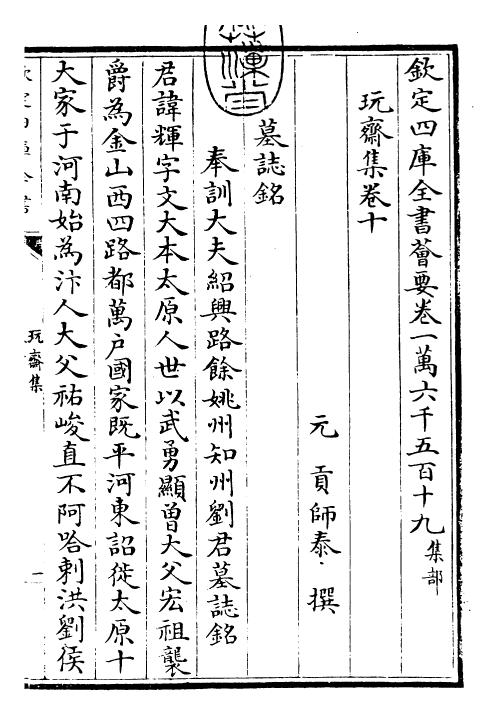 欽定四庫全書薈要卷一萬六千五百十九 集部
玩齋集卷十
元 貢師泰 撰
墓誌銘
奉訓大夫紹興路餘姚州知州劉君墓誌銘
君諱輝字文大本太原人世以武勇顯曾大父宏祖襲
爵為金山西四路都萬户國家既平河東詔徙太原十
大家于河南始為汴人大父祐峻直不阿哈剌洪劉侯
欽定四庫全書
玩齋集
一